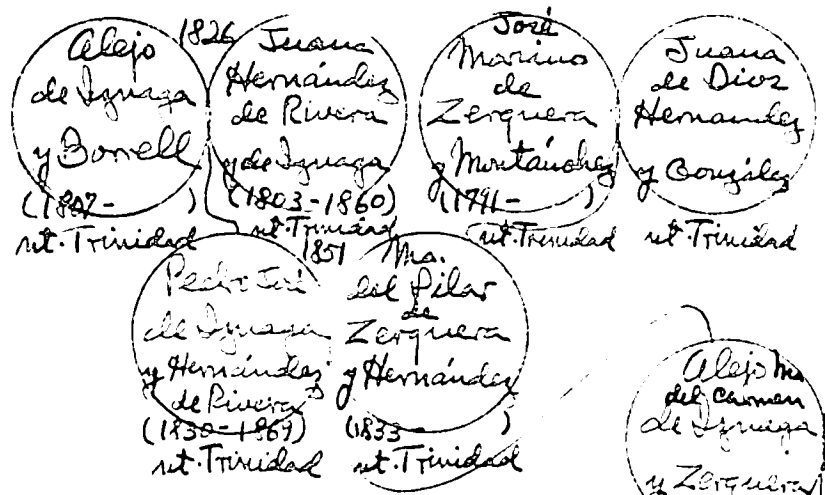 Alejo
de Iznaga
y Borrell
(1807- )
nt. Trinidad
1826
Juana
Hernández
de Rivera
y de Iznaga
(1803-1860)
nt. Trinidad
José
Mariano
de
Zerquera
y Montánchez
(1791- )
nt. Trinidad
Juana
de Dios
Hernandez
y González
nt. Trinidad
Pedro José
de Iznaga
y Hernández
de Rivera
(1830-1869)
nt. Trinidad
1851
Ma.
del Pilar
de
Zerquera
y Hernández
(1833- )
nt. Trinidad
Alejo Ma.
del Carmen
de Iznaga
y Zerquera